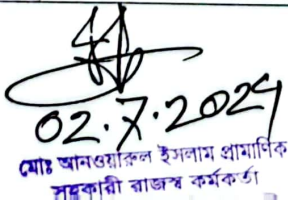 02.7.2024
মোঃ আনওয়ারুল ইসলাম প্রামাণিক
সহকারী রাজস্ব কর্মকর্তা